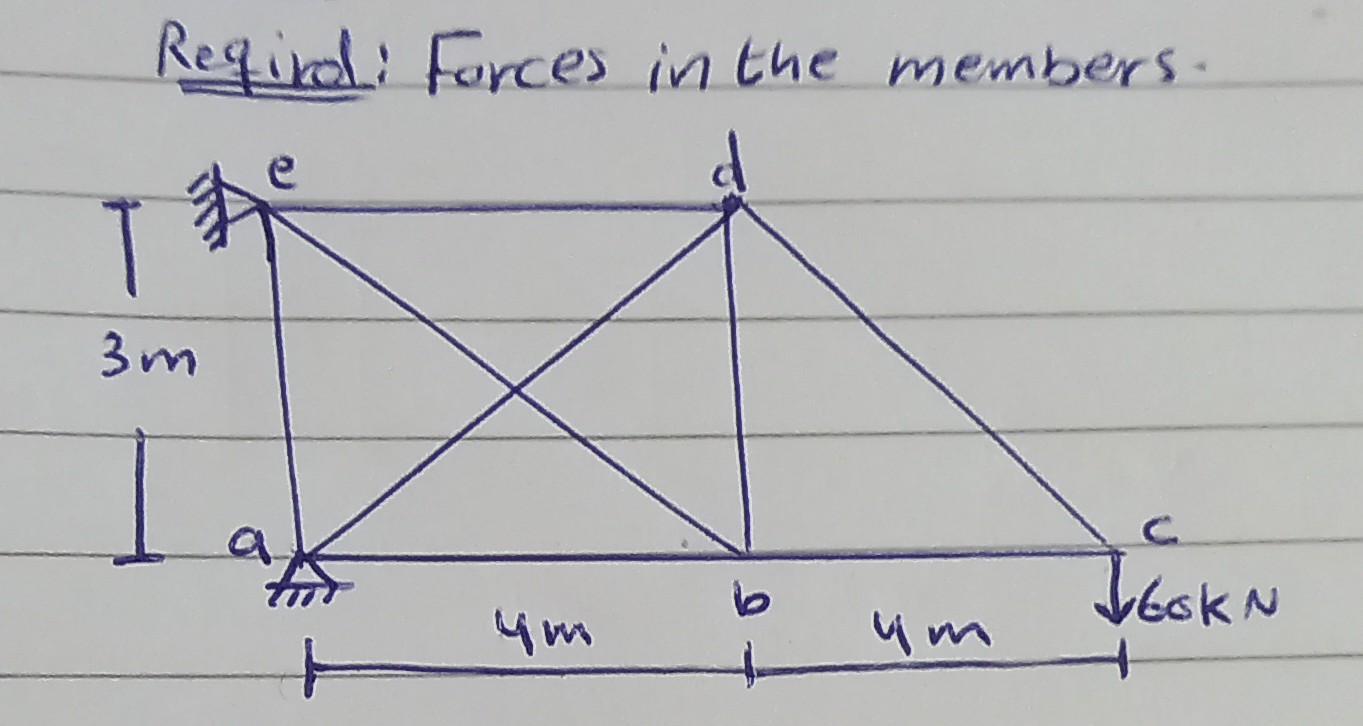 Reqird: Forces in the members.
e
d
3m
a
b
c
60kN
4m
4m